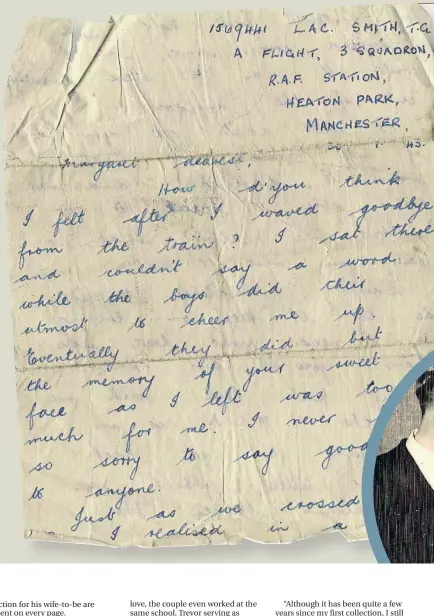 1569441 L.A.C. SMITH, T.G.
A FLIGHT, 3 SQUADRON,
R.A.F. STATION,
HEATON PARK,
MANCHESTER,
43.
Margaret dearest,
How d'you think
I felt after I waved goodbye
from the train? I sat there
and couldn't say a word
while the boys did their
utmost to cheer me up.
Eventually they did but
the memory of your sweet
face as I left was too
much for me. I never
so sorry to say good
to anyone.
Just as we crossed
I realised in a
ction for his wife-to-be are
ent on every page.
love, the couple even worked at the
same school, Trevor serving as
"Although it has been quite a few
years since my first collection, I still